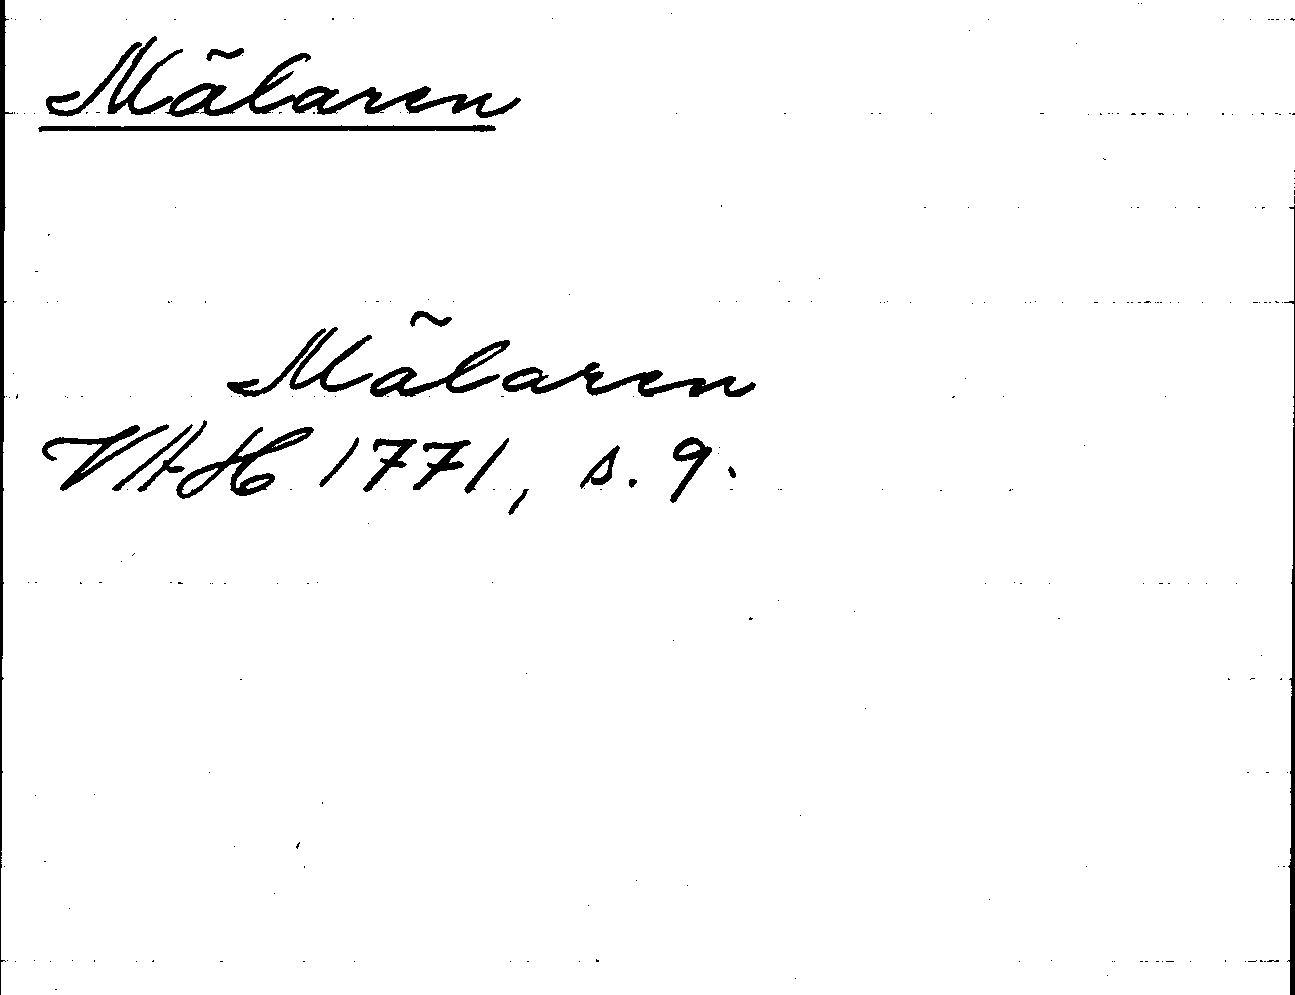 Mälaren
Mälaren
VAH 1771, s. 9.